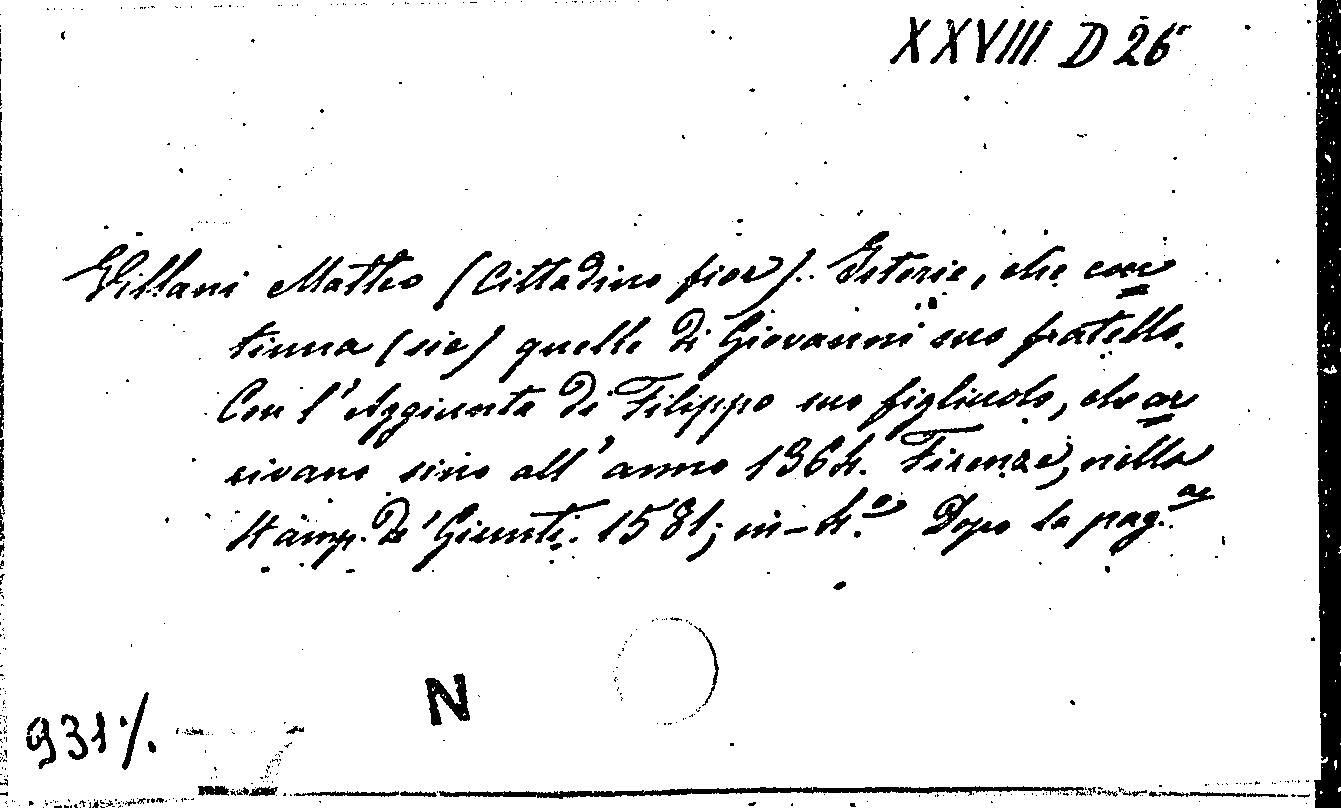 XXVIII D 26
Villani Matteo (Cittadino fior). Istorie, che con
tinua (sic) quelle di Giovanni suo fratello.
Con l'Aggiunta di Filippo suo figliuolo, che ar
rivano sino all'anno 1364. Firenze, nella
Stamp. de' Giunti. 1581; in-4.º Dopo la pag.ª
N
931%.